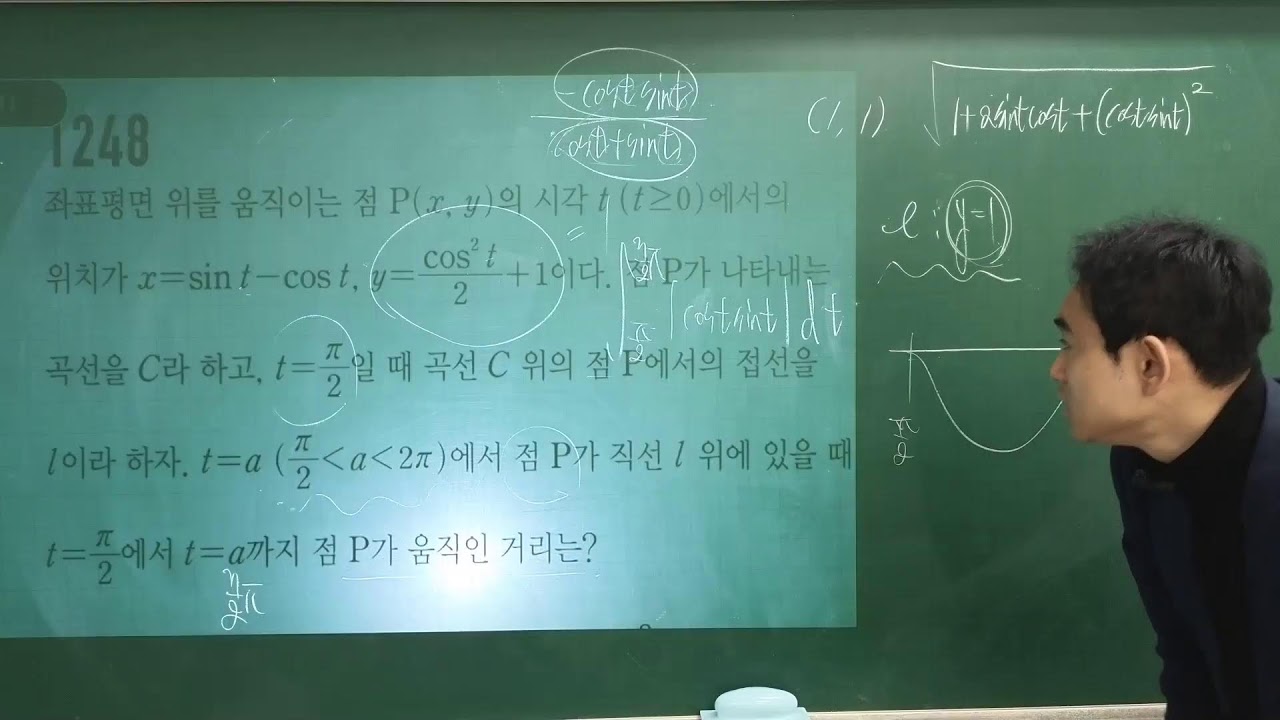 1248
좌표평면 위를 움직이는 점 P(x, y)의 시각 t (t≥0)에서의
위치가 x=sin t−cos t, y=cos² t/2+1이다. 점 P가 나타내는
곡선을 C라 하고, t=π/2일 때 곡선 C 위의 점 P에서의 접선을
l이라 하자. t=a (π/2<a<2π)에서 점 P가 직선 l 위에 있을 때
t=π/2에서 t=a까지 점 P가 움직인 거리는?
−cost sint
cost+sint
(1, 1)
√1+2sintcost+(costsint)²
l : y=1
|costsint| dt
π/2
π/2